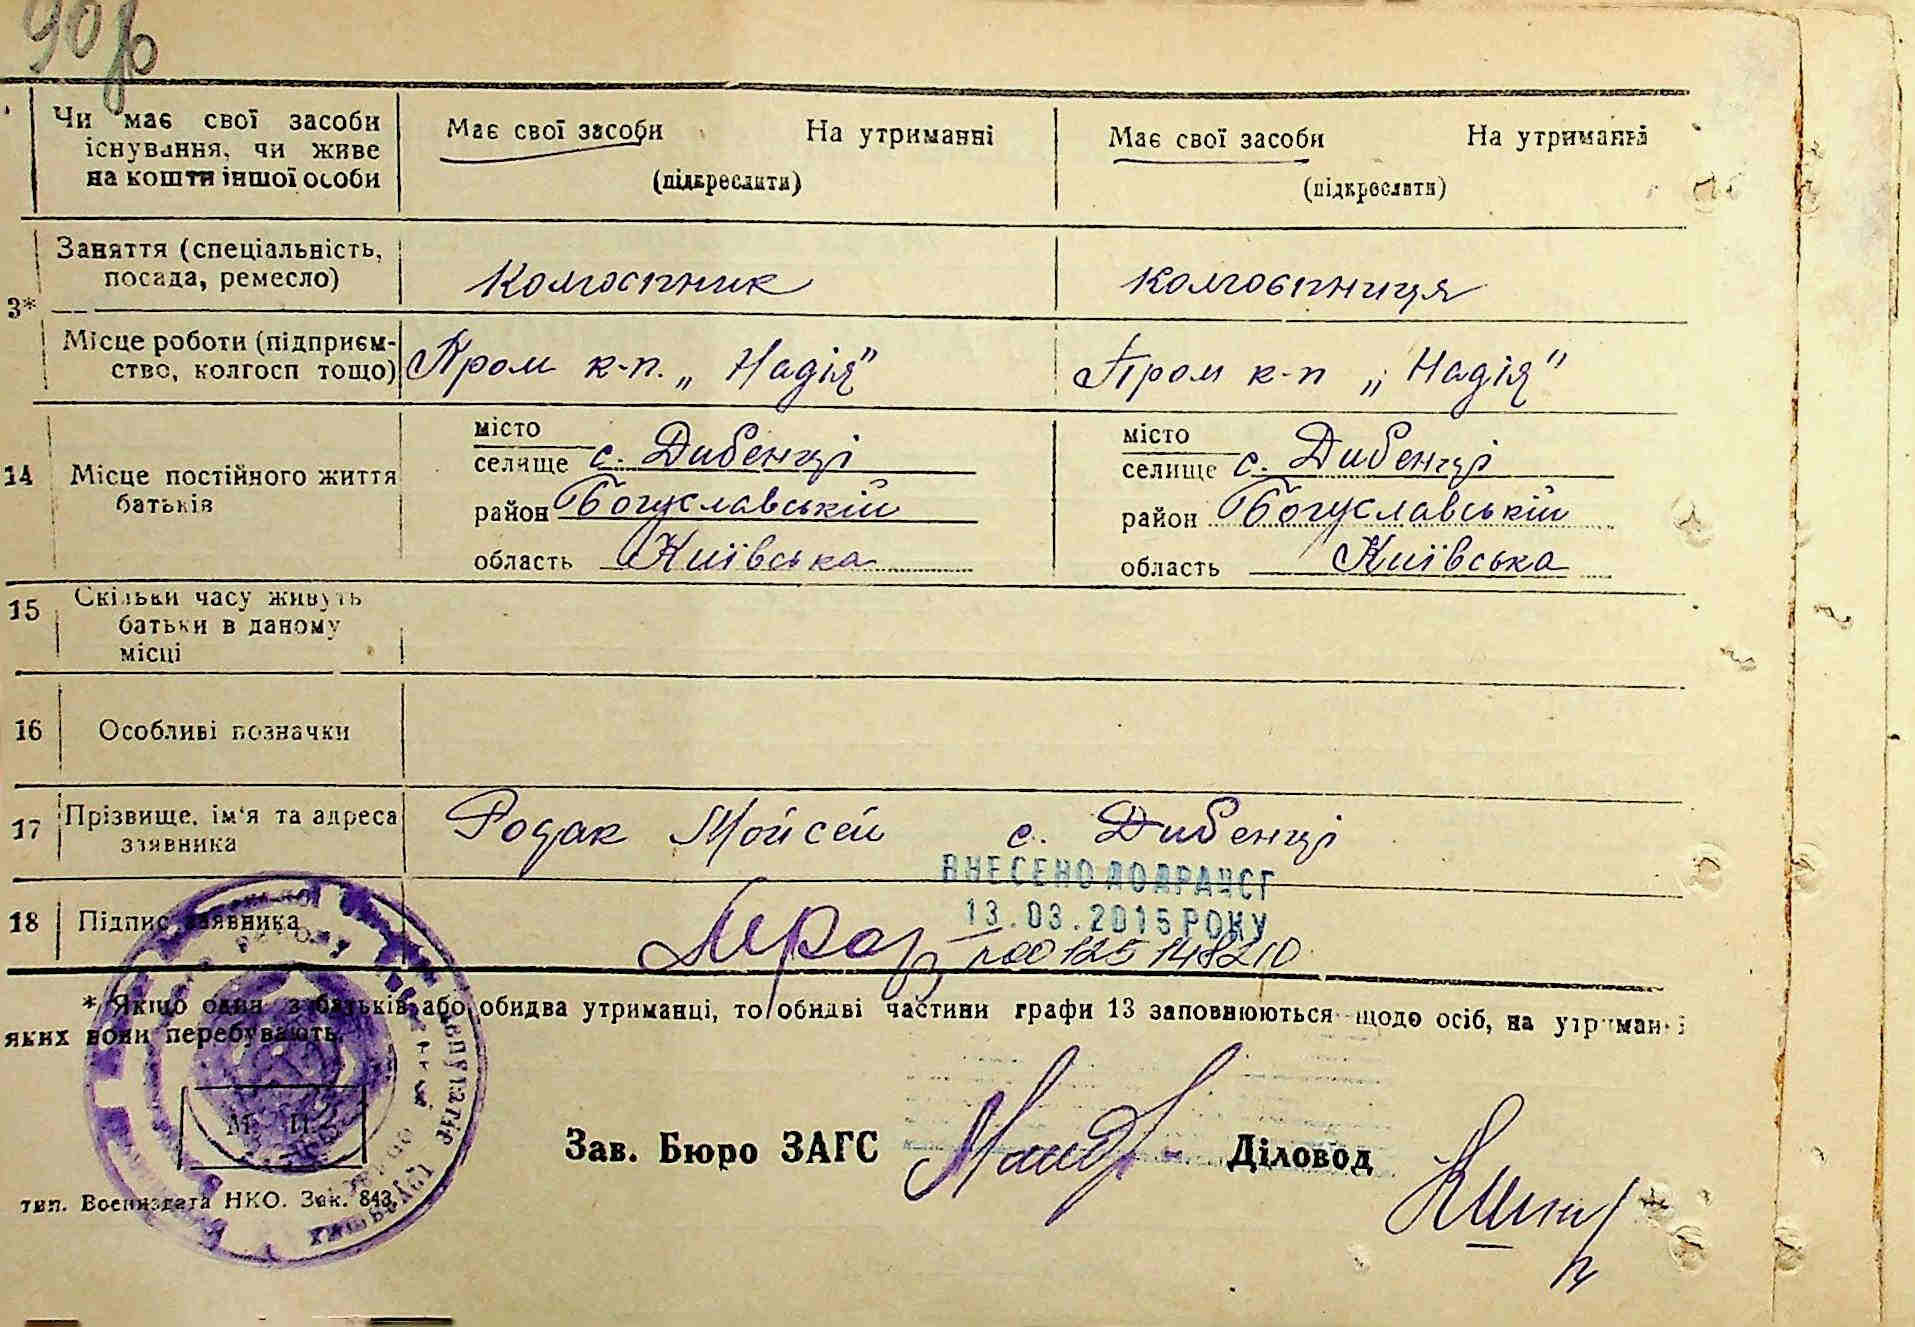 90
Чи має свої засоби існування, чи живе на кошти іншої особи
Має свої засоби На утриманні
(підкреслити)
Має свої засоби На утриманні
(підкреслити)
3*
Заняття (спеціальність, посада, ремесло)
Колгоспник
колгоспниця
Місце роботи (підприєм-
ство, колгосп тощо)
Пром к-п. „Надія"
Пром к-п „Надія"
14
Місце постійного життя
батьків
місто
селище с. Дибенці
район Богуславській
область Київська
місто
селище с. Дибенці
район Богуславській
область Київська
15
Скільки часу живуть
батьки в даному
місці
16
Особливі позначки
17
Прізвище, ім'я та адреса
заявника
Родак Мойсей с. Дибенці
ВНЕСЕНО ДО ДРАЦСГ
13.03.2015 РОКУ
00125148210
18
Підпис заявника
* Якщо один з батьків або обидва утриманці, то обидві частини графи 13 заповнюються щодо осіб, на утриманні
яких вони перебувають.
М. П.
Зав. Бюро ЗАГС
Діловод
тип. Воениздата НКО. Зак. 843